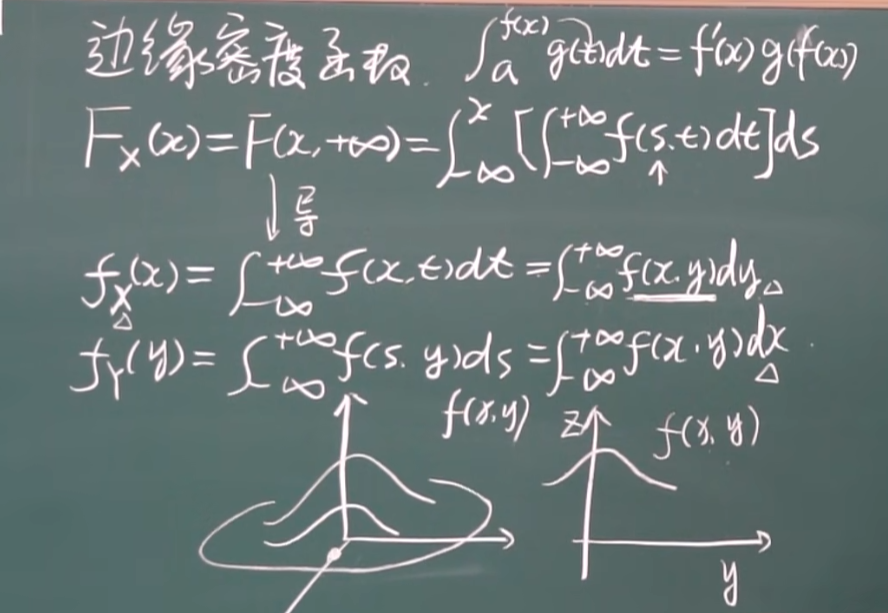 边缘密度函数. ∫_a^{f(x)} g(t)dt = f'(x) g(f(x))
F_X(x) = F(x, +∞) = ∫_{-∞}^{x} [∫_{-∞}^{+∞} f(s.t) dt] ds
↓导
f_X(x) = ∫_{-∞}^{+∞} f(x,t) dt = ∫_{-∞}^{+∞} f(x.y) dy
f_Y(y) = ∫_{-∞}^{+∞} f(s.y) ds = ∫_{-∞}^{+∞} f(x.y) dx.
f(x,y)
z f(x,y)
y